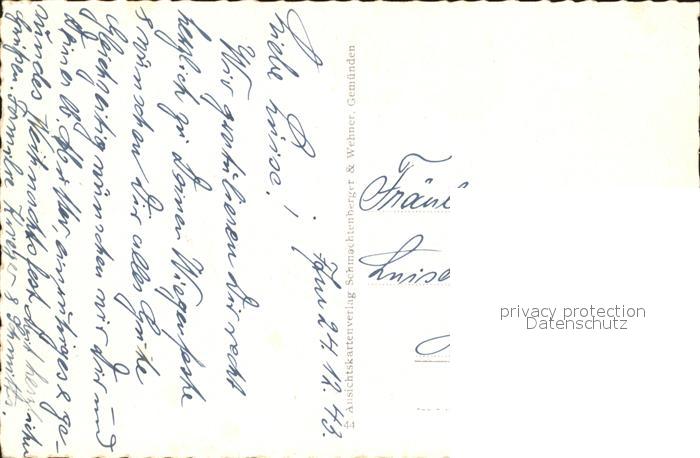 den 24.12.43.
Liebe Luise!
Wir gratulieren Dir recht
herzlich zu Deinem Wiegenfeste
& wünschen Dir alles Gute
Gleichzeitig wünschen wir Dir und
Deiner lb. Mutter, ein ruhiges & ge-
sundes Weihnachtsfest. Mit herzlichen
Grüßen Familie
Ansichtskartenverlag Schmachtenberger & Wehner, Gemünden
Fräul
Luise
privacy protection
Datenschutz